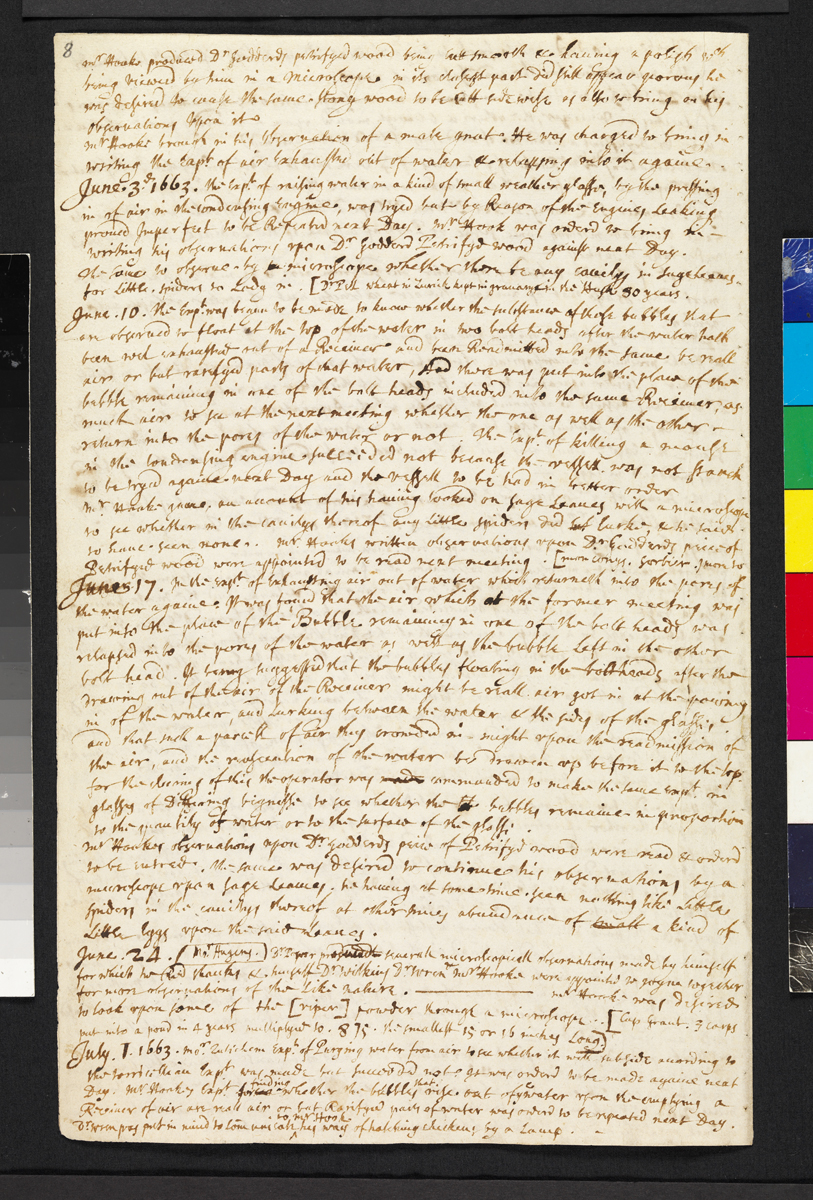 8
Mr Hooke produced Dr Godderds petrifyed wood being cut smooth & having a polish wch
being viewed by him in a Microscope in its closest part did still appear porous, he
was desired to cause the same stony wood to be cutt side wise as also to bring in his
observations Upon it
Mr Hooke brought in his observation of a male gnat. He was charged to bring in
writing the Expt. of air Exhausted out of water & relapsing into it againe.
June. 3d. 1663. the Expt. of raising water in a kind of small weather glasse, by the pressing
in of air in the condensing Engine, was tryed but by Reason of the Engines Leaking
proved Imperfect to be Repeated next Day. Mr Hook was orderd to bring in
writing his observations upon Dr Godderd Petrifyd wood against next Day.
the same to observe by a microscope whether there be any cavitys in sage leaves
for Little spiders to Lodg in. [Dr Pell wheat in Zurich kept in granary in the Husk 80 years.
June. 10. the Expt. was begun to be made to know whether the substance of those bubbles that
are observed to float at the top of the water in two bolt heads after the water hath
been well exhausted out of a Receiver and been Readmitted into the same be reall
air or but rarifyed parts of that water, And there was put into the place of the
bubble remaining in one of the bolt heads included into the same Receiver, as
much air to see at the next meeting whether the one as well as the other
return into the pores of the water or not. The Expt. of killing a mouse
in the condensing engine succeeded not because the vessell was not stanch
to be tryed againe next Day and the vessell to be had in better order
Mr Hooke gave an account of his having looked on sage Leaves with a microscope
to see whether in the cavitys thereof any Little spiders did lurke, & he said
to have seen none. Mr. Hooks written observations upon Dr Godderds piece of
Petrifyd wood were appointed to be read next meeting. [mon conys. Sorbier. mon to
June 17. In the Expt. of Exhausting air out of water which returneth into the pores of
the water againe. It was found that the air which at the former meeting was
put into the place of the Bubble remaining in one of the bolt heads was
relapsed into the pores of the water as well as the bubble Left in the other
bolt head. It being suggested that the bubbles floating in the boltheads after the
drawing out of the air of the Receiver might be reall air got in at the pouring
in of the water, and Lurking between the water & the sides of the glasses,
and that such a parcell of air thus crowded in might upon the readmission of
the air, and the relaxation of the water be drawen up before it to the top
for the clearing of this the operator was commanded to make the same Expt. in
glasses of Differing bignesse to see whether the bubbles remaine in proportion
to the quantity of water or to the surface of the glasse.
Mr Hookes observations upon Dr Godderds peice of Petrifyd wood were read & orderd
to be entred. the same was desired to continue his observations by a
microscope upon sage Leaves. he having at some time seen nothing like Little
spiders in the cavitys thereof at other times abundance of small a kind of
Little Eggs upon the said Leaves.
June. 24. (Mr. Hugens.) Dr Power produced severall microscopicall observations made by himself
for which he had thanks & himself Dr Wilkins Dr wren Mr Hooke were appointed to joyne together
for more observations of the like nature. Mr Hooke was desired
to look upon some of the [viper] powder through a microscope. [Cap Graunt. 3 carps
put into a pond in 4 years multiplyd to. 875. the smallest 15 or 16 inches Long]
July. 1. 1663. Expt. of Purging water from air to see whether it will subside according to
the torricellian Expt was made but succeeded not. It was orderd to be made againe next
Day. Mr Hookes Expt. finding whether the bubbles that rise out of water upon the emptying a
Receiver of air are reall air or but Rarifyed parts of water was orderd to be repeated next Day.
Dr wren was put in mind to communicate to Mr Hook his way of hatching chickens by a Lamp.